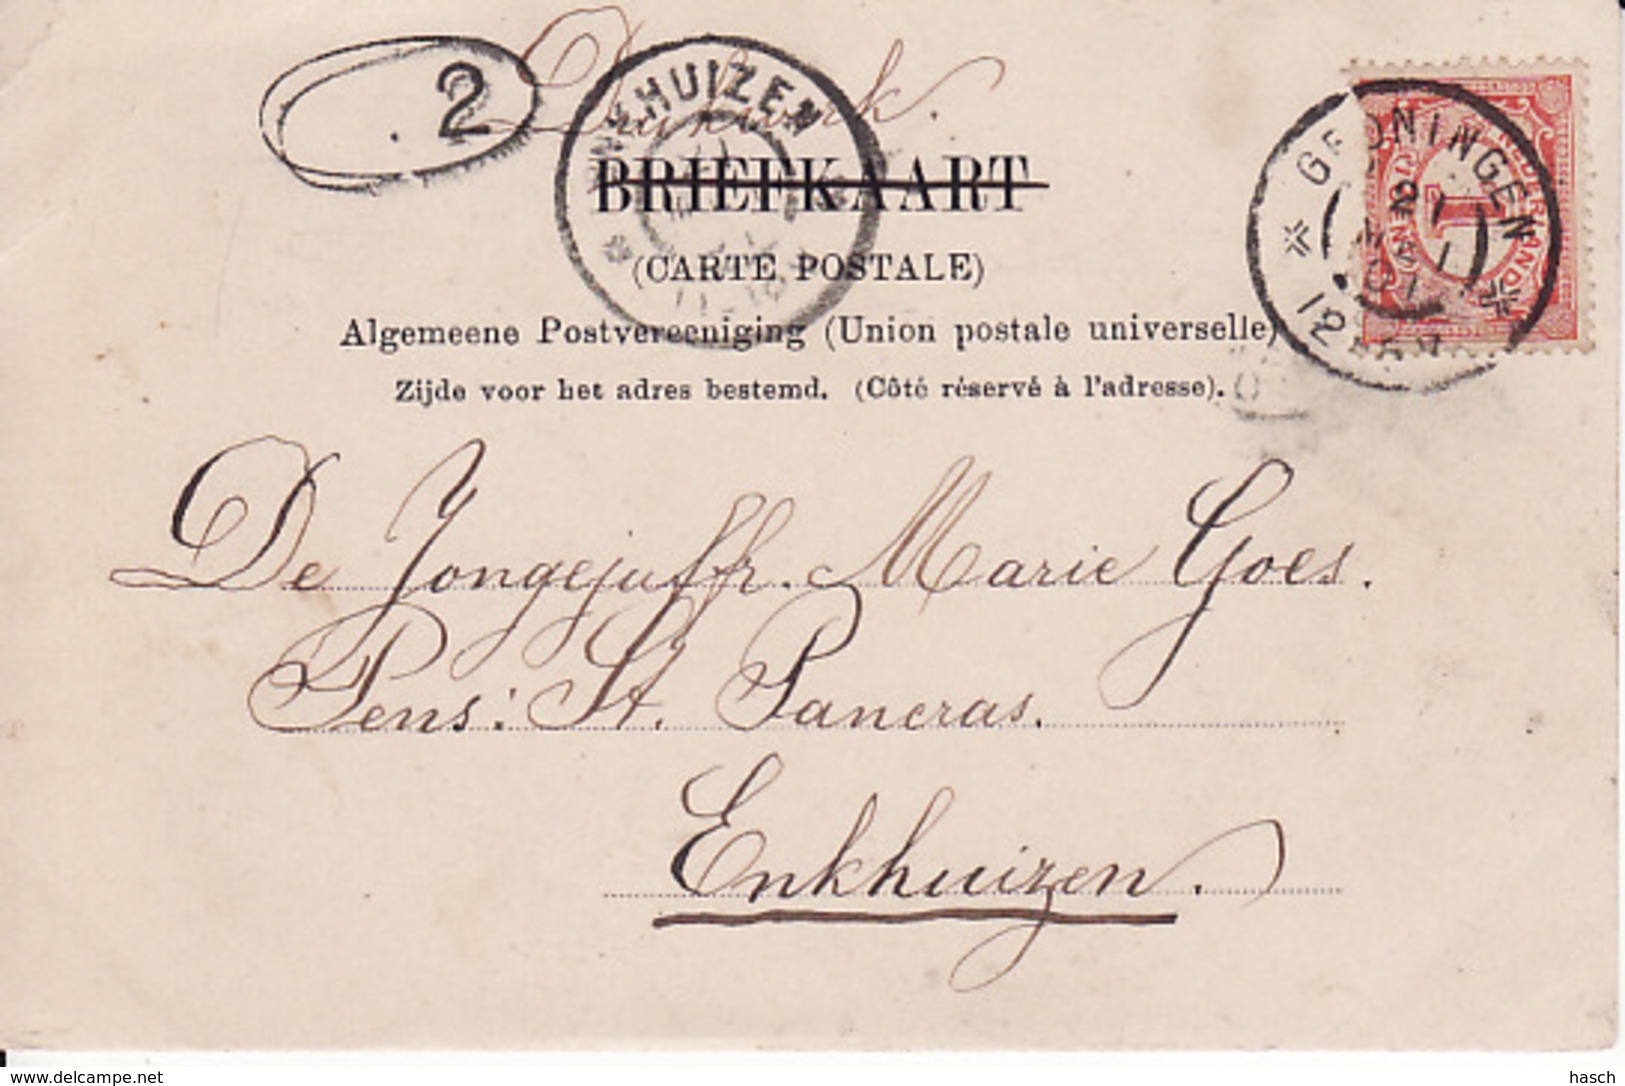 2
Drukwerk.
ENKHUIZEN
BRIEFKAART
(CARTE POSTALE)
Algemeene Postvereeniging (Union postale universelle)
Zijde voor het adres bestemd. (Côté réservé à l'adresse).
GRONINGEN
NEDERLAND
1
21
MEI
01
De Jongejuffr. Marie Goes.
Pens: St. Pancras.
Enkhuizen.
www.delcampe.net
hasch